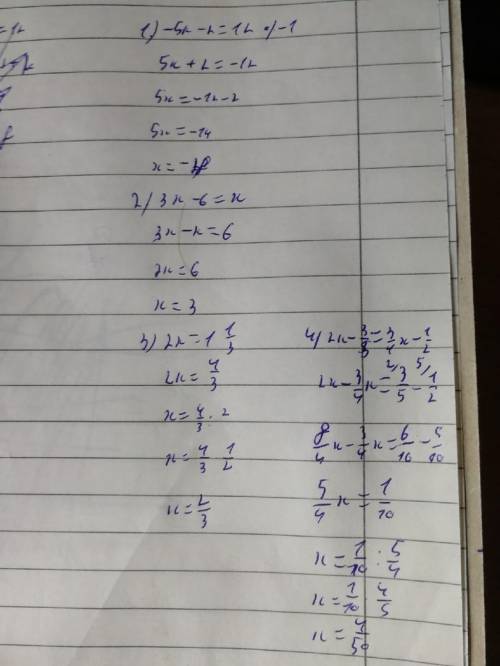 1) -5x-2=12 •/-1
5x+2=-12
5x=-12-2
5x=-14
2) 3x-6=x
3x-x=6
2x=6
x=3
3) 2x=1 1/3
2x=4/3
x=4/3:2
x=4/3·1/2
x=2/3
4) 2x-3/5=3/4x-1/2
2x-3/4x=3/5-1/2
8/4x-3/4x=6/10-5/10
5/4x=1/10
x=1/10:5/4
x=1/10·4/5
x=4/50